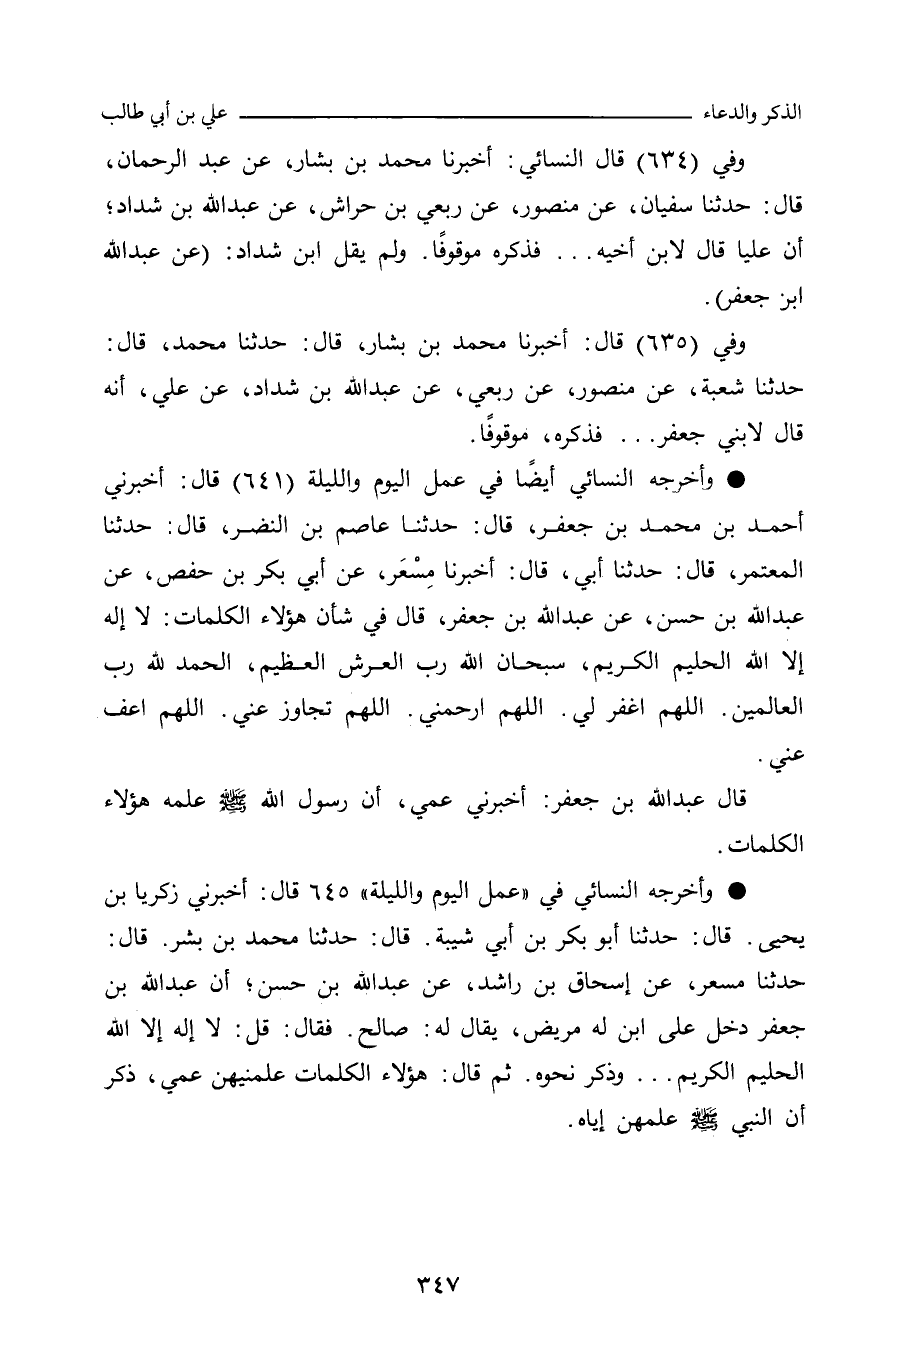 الذكر والدعاء ـــــــــــــــــــــــــــــــــــــ علي بن أبي طالب
وفي (٦٣٤) قال النسائي: أخبرنا محمد بن بشار، عن عبد الرحمان،
قال: حدثنا سفيان، عن منصور، عن ربعي بن حراش، عن عبدالله بن شداد؛
أن عليا قال لابن أخيه... فذكره موقوفًا. ولم يقل ابن شداد: (عن عبدالله
ابن جعفر).
وفي (٦٣٥) قال: أخبرنا محمد بن بشار، قال: حدثنا محمد، قال:
حدثنا شعبة، عن منصور، عن ربعي، عن عبدالله بن شداد، عن علي، أنه
قال لابني جعفر... فذكره، موقوفًا.
● وأخرجه النسائي أيضًا في عمل اليوم والليلة (٦٤١) قال: أخبرني
أحمد بن محمد بن جعفر، قال: حدثنا عاصم بن النضر، قال: حدثنا
المعتمر، قال: حدثنا أبي، قال: أخبرنا مِسْعَر، عن أبي بكر بن حفص، عن
عبدالله بن حسن، عن عبدالله بن جعفر، قال في شأن هؤلاء الكلمات: لا إله
إلا الله الحليم الكريم، سبحان الله رب العرش العظيم، الحمد لله رب
العالمين. اللهم اغفر لي. اللهم ارحمني. اللهم تجاوز عني. اللهم اعف
عني.
قال عبدالله بن جعفر: أخبرني عمي، أن رسول الله ﷺ علمه هؤلاء
الكلمات.
● وأخرجه النسائي في «عمل اليوم والليلة» ٦٤٥ قال: أخبرني زكريا بن
يحيى. قال: حدثنا أبو بكر بن أبي شيبة. قال: حدثنا محمد بن بشر. قال:
حدثنا مسعر، عن إسحاق بن راشد، عن عبدالله بن حسن؛ أن عبدالله بن
جعفر دخل على ابن له مريض، يقال له: صالح. فقال: قل: لا إله إلا الله
الحليم الكريم... وذكر نحوه. ثم قال: هؤلاء الكلمات علمنيهن عمي، ذكر
أن النبي ﷺ علمهن إياه.
٣٤٧